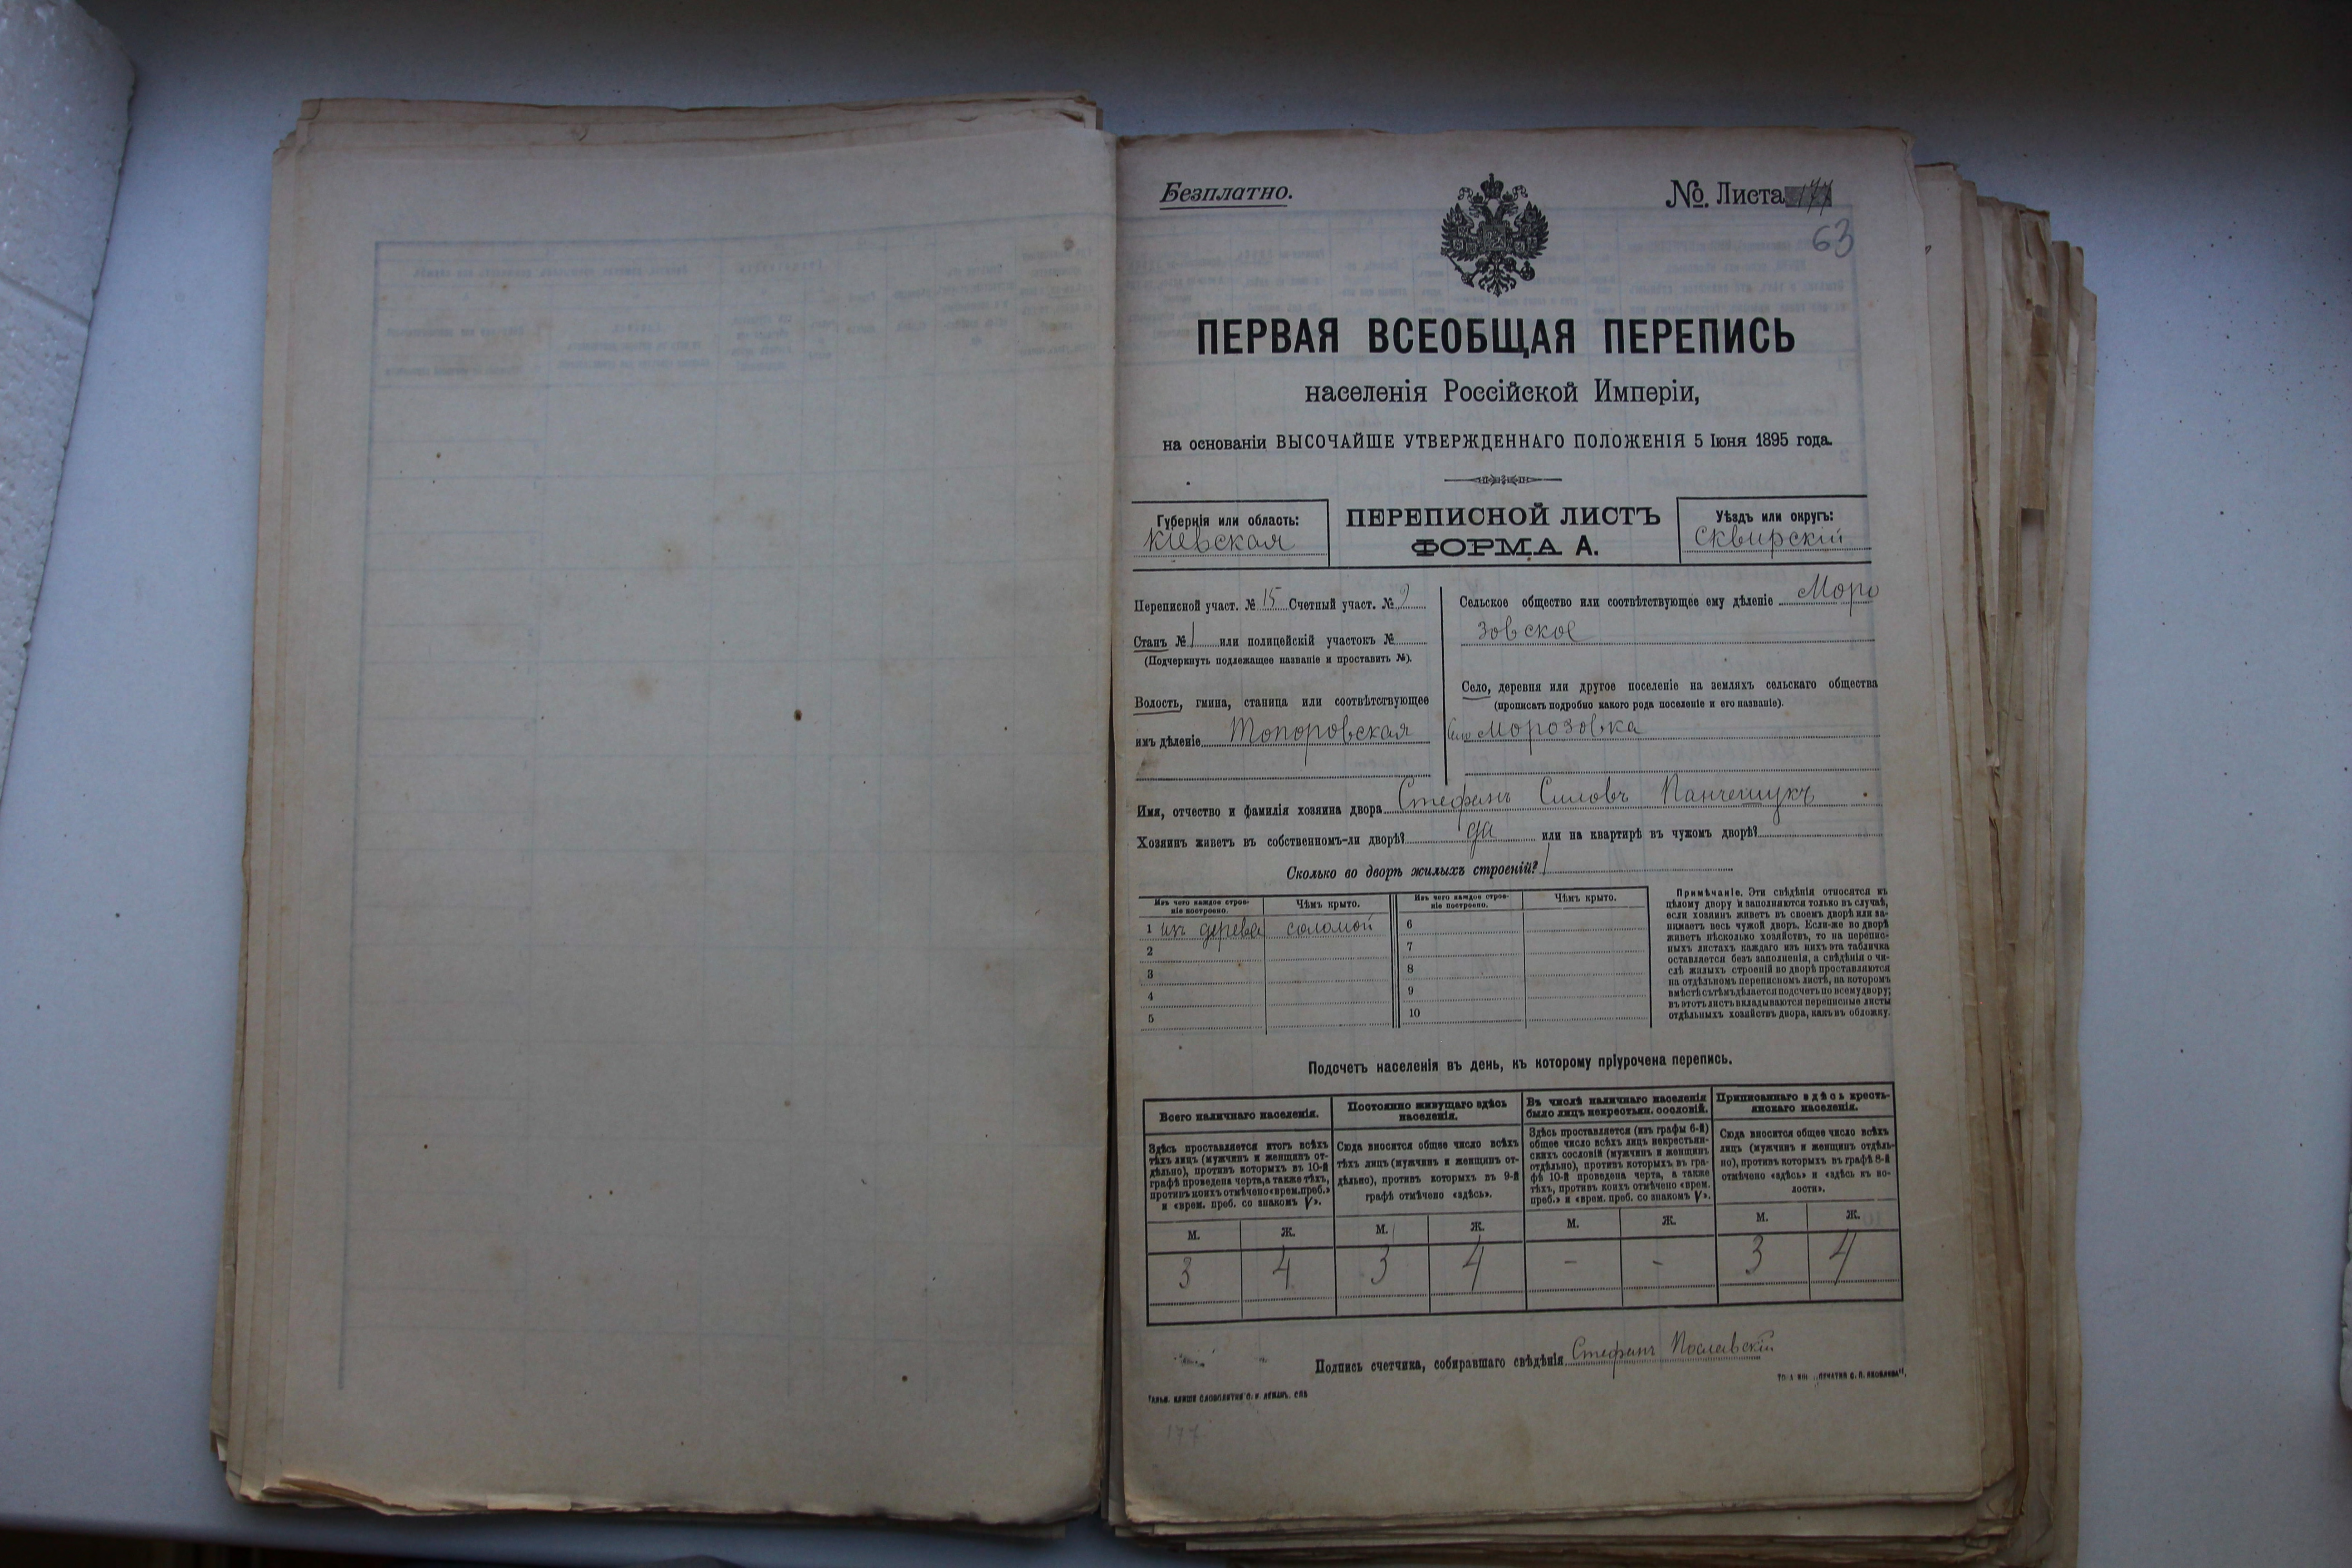 Безплатно.
№ Листа 177
63
ПЕРВАЯ ВСЕОБЩАЯ ПЕРЕПИСЬ
населенія Россійской Имперіи,
на основаніи ВЫСОЧАЙШЕ УТВЕРЖДЕННАГО ПОЛОЖЕНІЯ 5 Іюня 1895 года.
Губернія или область:
Кіевская
ПЕРЕПИСНОЙ ЛИСТЪ
ФОРМА А.
Уѣздъ или округъ:
Сквирскій
Переписной участ. № 15 Счетный участ. № 9
Станъ № 1 или полицейскій участокъ №
(Подчеркнуть подлежащее названіе и проставить №).
Волость, гмина, станица или соотвѣтствующее
имъ дѣленіе Топоровская
Сельское общество или соотвѣтствующее ему дѣленіе Моро
зовское
Село, деревня или другое поселеніе на земляхъ сельскаго общества
(прописать подробно какого рода поселеніе и его названіе).
Село Морозовка
Имя, отчество и фамилія хозяина двора Стефанъ Силовъ
Хозяинъ живетъ въ собственномъ-ли дворѣ? да или на квартирѣ въ чужомъ дворѣ?
Сколько во дворѣ жилыхъ строеній? 1
Изъ чего каждое строе-
ніе построено.
Чѣмъ крыто.
Изъ чего каждое строе-
ніе построено.
Чѣмъ крыто.
1 изъ дерева соломой
2
3
4
5
6
7
8
9
10
Примѣчаніе. Эти свѣдѣнія относятся къ
цѣлому двору и заполняются только въ случаѣ,
если хозяинъ живетъ въ своемъ дворѣ или за-
нимаетъ весь чужой дворъ. Если-же во дворѣ
живетъ нѣсколько хозяйствъ, то на перепис-
ныхъ листахъ каждаго изъ нихъ эта табличка
оставляется безъ заполненія, а свѣдѣнія о чи-
слѣ жилыхъ строеній во дворѣ проставляются
на отдѣльномъ переписномъ листѣ, на которомъ
вмѣстѣ съ тѣмъ дѣлается подсчетъ по всему двору;
въ этотъ листъ вкладываются переписные листы
отдѣльныхъ хозяйствъ двора, какъ въ обложку.
Подсчетъ населенія въ день, къ которому пріурочена перепись.
Всего наличнаго населенія.
Здѣсь проставляется итогъ всѣхъ
тѣхъ лицъ (мужчинъ и женщинъ от-
дѣльно), противъ которыхъ въ 10-й
графѣ проведена черта, а также тѣхъ,
противъ коихъ отмѣчено «врем. преб.»
и «врем. преб. со знакомъ V».
Постоянно живущаго здѣсь
населенія.
Сюда вносится общее число всѣхъ
тѣхъ лицъ (мужчинъ и женщинъ от-
дѣльно), противъ которыхъ въ 9-й
графѣ отмѣчено «здѣсь».
Въ числѣ наличнаго населенія
было лицъ некрестьян. сословій.
Здѣсь проставляется (изъ графы 6-й)
общее число всѣхъ лицъ некрестьян-
скихъ сословій (мужчинъ и женщинъ
отдѣльно), противъ которыхъ въ гра-
фѣ 10-й проведена черта, а также
тѣхъ, противъ коихъ отмѣчено «врем.
преб.» и «врем. преб. со знакомъ V».
Приписаннаго здѣсь кресть-
янскаго населенія.
Сюда вносится общее число всѣхъ
лицъ (мужчинъ и женщинъ отдѣль-
но), противъ которыхъ въ графѣ 8-й
отмѣчено «здѣсь» и «здѣсь къ во-
лости».
М. Ж. М. Ж. М. Ж. М. Ж.
3 4 3 4 - - 3 4
Подпись счетчика, собиравшаго свѣдѣнія Стефанъ Пославскій
177